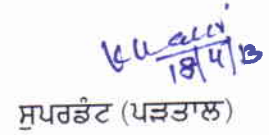 18/4/13
ਸੁਪਰਡੰਟ (ਪੜਤਾਲ)